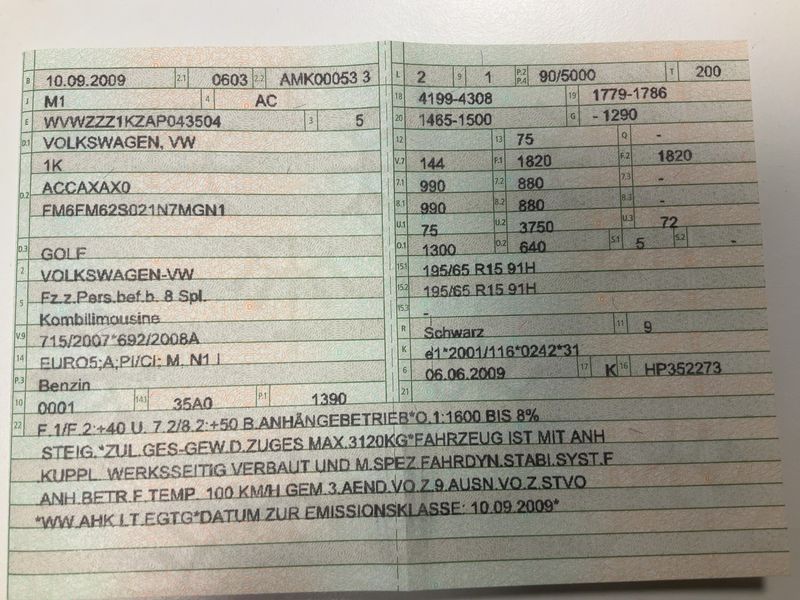 B 10.09.2009 2.1 0603 2.2 AMK00053 3
J M1 4 AC
E WVWZZZ1KZAP043504 3 5
D.1 VOLKSWAGEN, VW
1K
D.2 ACCAXAX0
FM6FM62S021N7MGN1
D.3 GOLF
2 VOLKSWAGEN-VW
5 Fz.z.Pers.bef.b. 8 Spl.
Kombilimousine
V.9 715/2007*692/2008A
14 EURO5;A;PI/CI; M, N1 I
P.3 Benzin
10 0001 14.1 35A0 P.1 1390
L 2 9 1 P.2 P.4 90/5000 T 200
18 4199-4308 19 1779-1786
20 1465-1500 G - 1290
12 13 75 Q -
V.7 144 F.1 1820 F.2 1820
7.1 990 7.2 880 7.3 -
8.1 990 8.2 880 8.3 -
U.1 75 U.2 3750 U.3 72
O.1 1300 O.2 640 S.1 5 S.2 -
15.1 195/65 R15 91H
15.2 195/65 R15 91H
15.3 -
R Schwarz 11 9
K e1*2001/116*0242*31
6 06.06.2009 17 K 16 HP352273
21
22 F.1/F.2:+40 U. 7.2/8.2:+50 B.ANHÄNGEBETRIEB*O.1:1600 BIS 8%
STEIG.*ZUL.GES-GEW.D.ZUGES MAX.3120KG*FAHRZEUG IST MIT ANH
.KUPPL. WERKSSEITIG VERBAUT UND M.SPEZ.FAHRDYN.STABI.SYST.F
.ANH.BETR.F.TEMP. 100 KM/H GEM.3.AEND.VO.Z.9.AUSN.VO.Z.STVO
*WW.AHK LT.EGTG*DATUM ZUR EMISSIONSKLASSE: 10.09.2009*